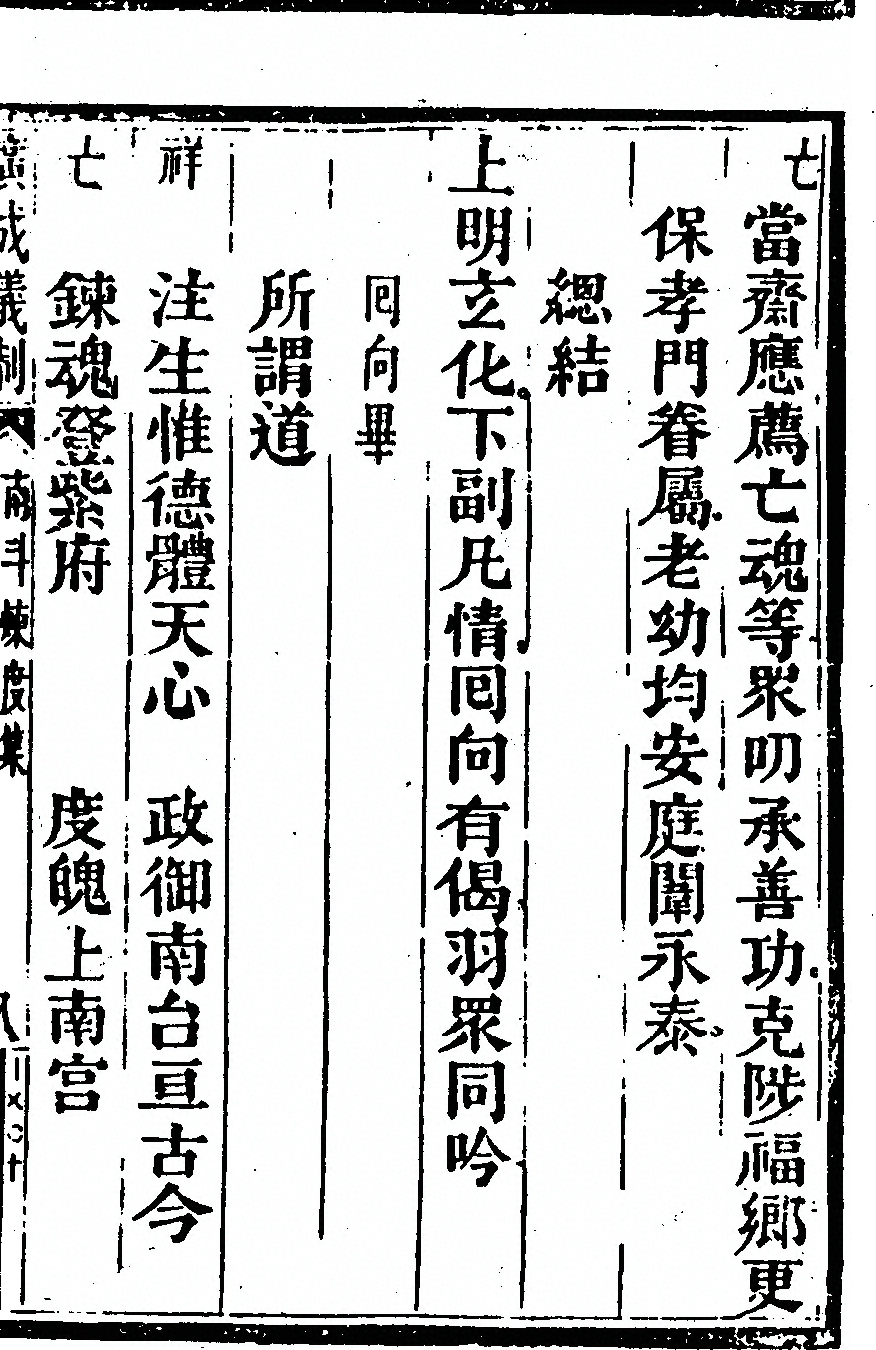 亡 當齋應薦亡魂等眾叨承善功克陟福鄉更
保孝門眷屬老幼均安庭闈永泰
總結
上明立化下副凡情囘向有偈羽眾同吟
囘向畢
所謂道
祥 注生惟德體天心 政御南台亘古今
亡 鍊魂登紫府 度魄上南宮
廣成儀制 南斗煉度集 八